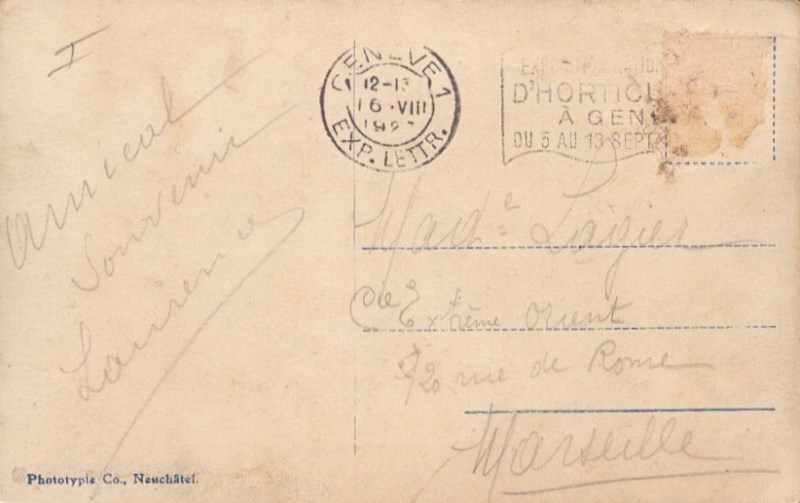 I
Amical
Souvenir
Laurence
GENÈVE 1
12-13
16 VIII
192
EXP. LETTR.
D'HORTICU
À GEN
DU 5 AU 13 SEPT
Mad.e Laigier
Cie Extrême Orient
rue de Rome
Marseille
Phototypie Co., Neuchâtel.